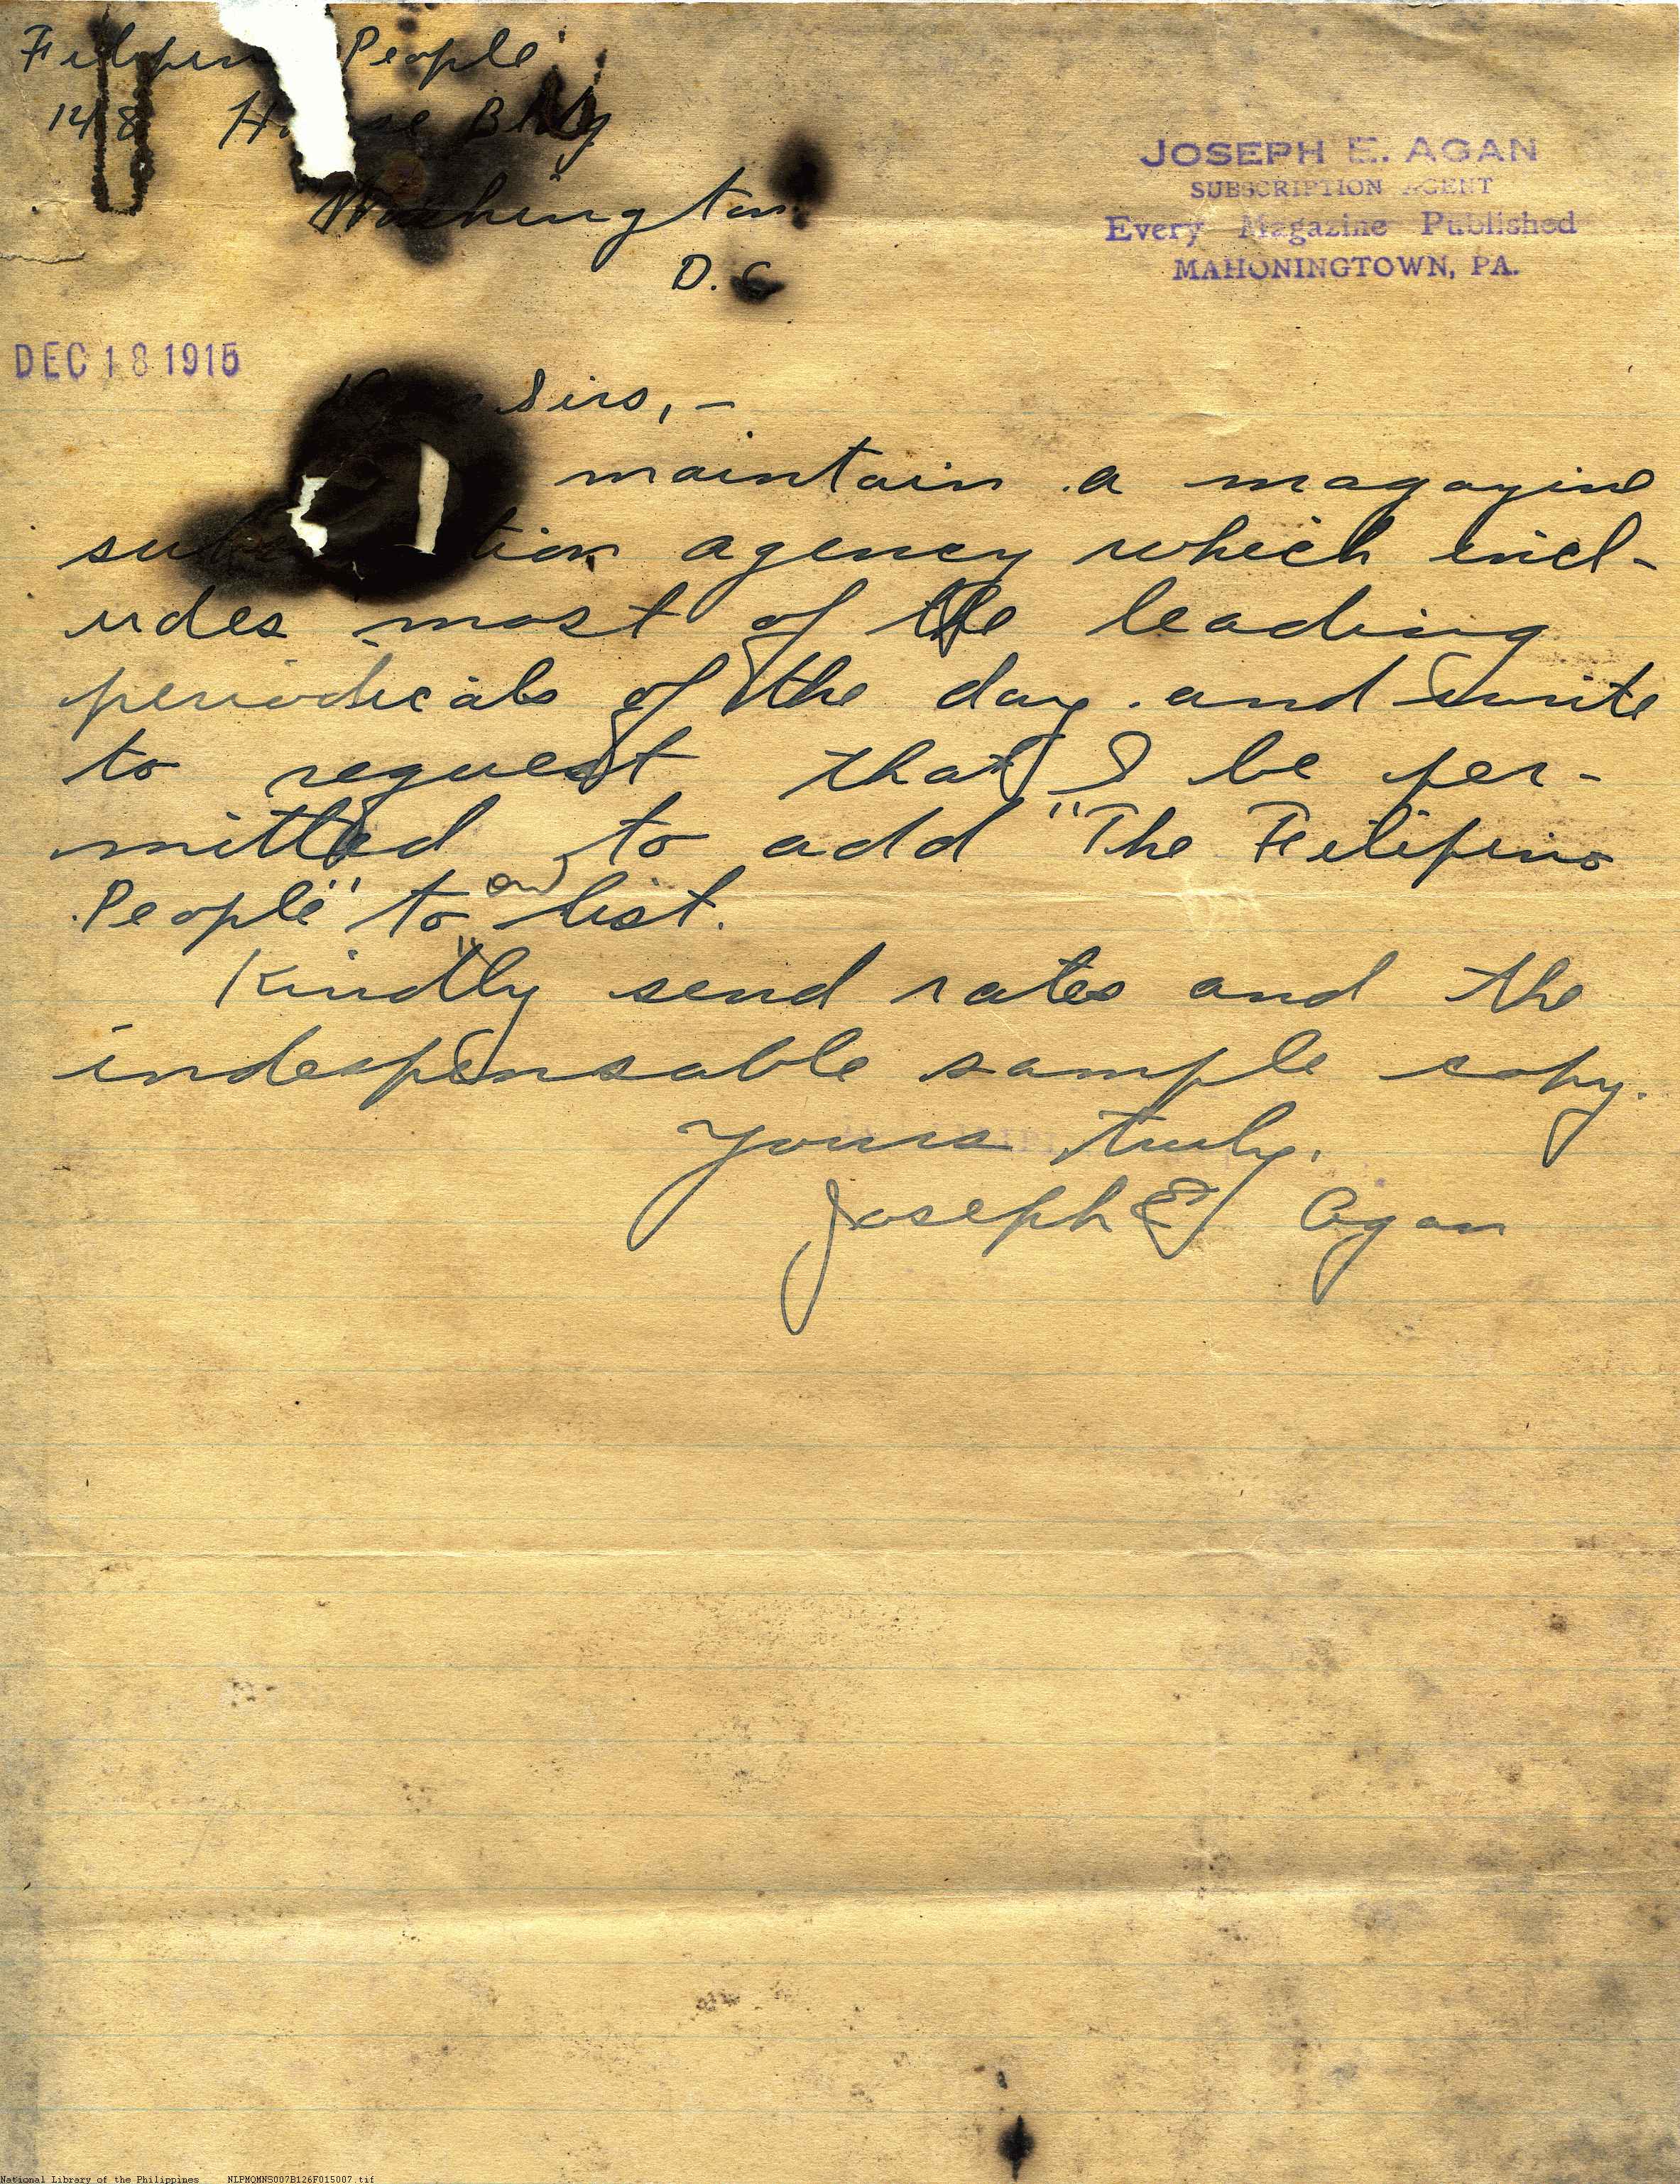 Filipino People
1418 House Bldg
Washington
D.C
JOSEPH E. AGAN
SUBSCRIPTION AGENT
Every Magazine Published
MAHONINGTOWN, PA.
DEC 18 1915
Sirs,-
maintain a magazine
subscription agency which incl-
udes most of the leading
periodicals of the day and write
to request that I be per-
mitted to add "The Filipino
People" to our list.
Kindly send rates and the
indespensable sample copy.
Yours truly.
Joseph E Agan
National Library of the Philippines NLPMQMNS007B126F015007.tif